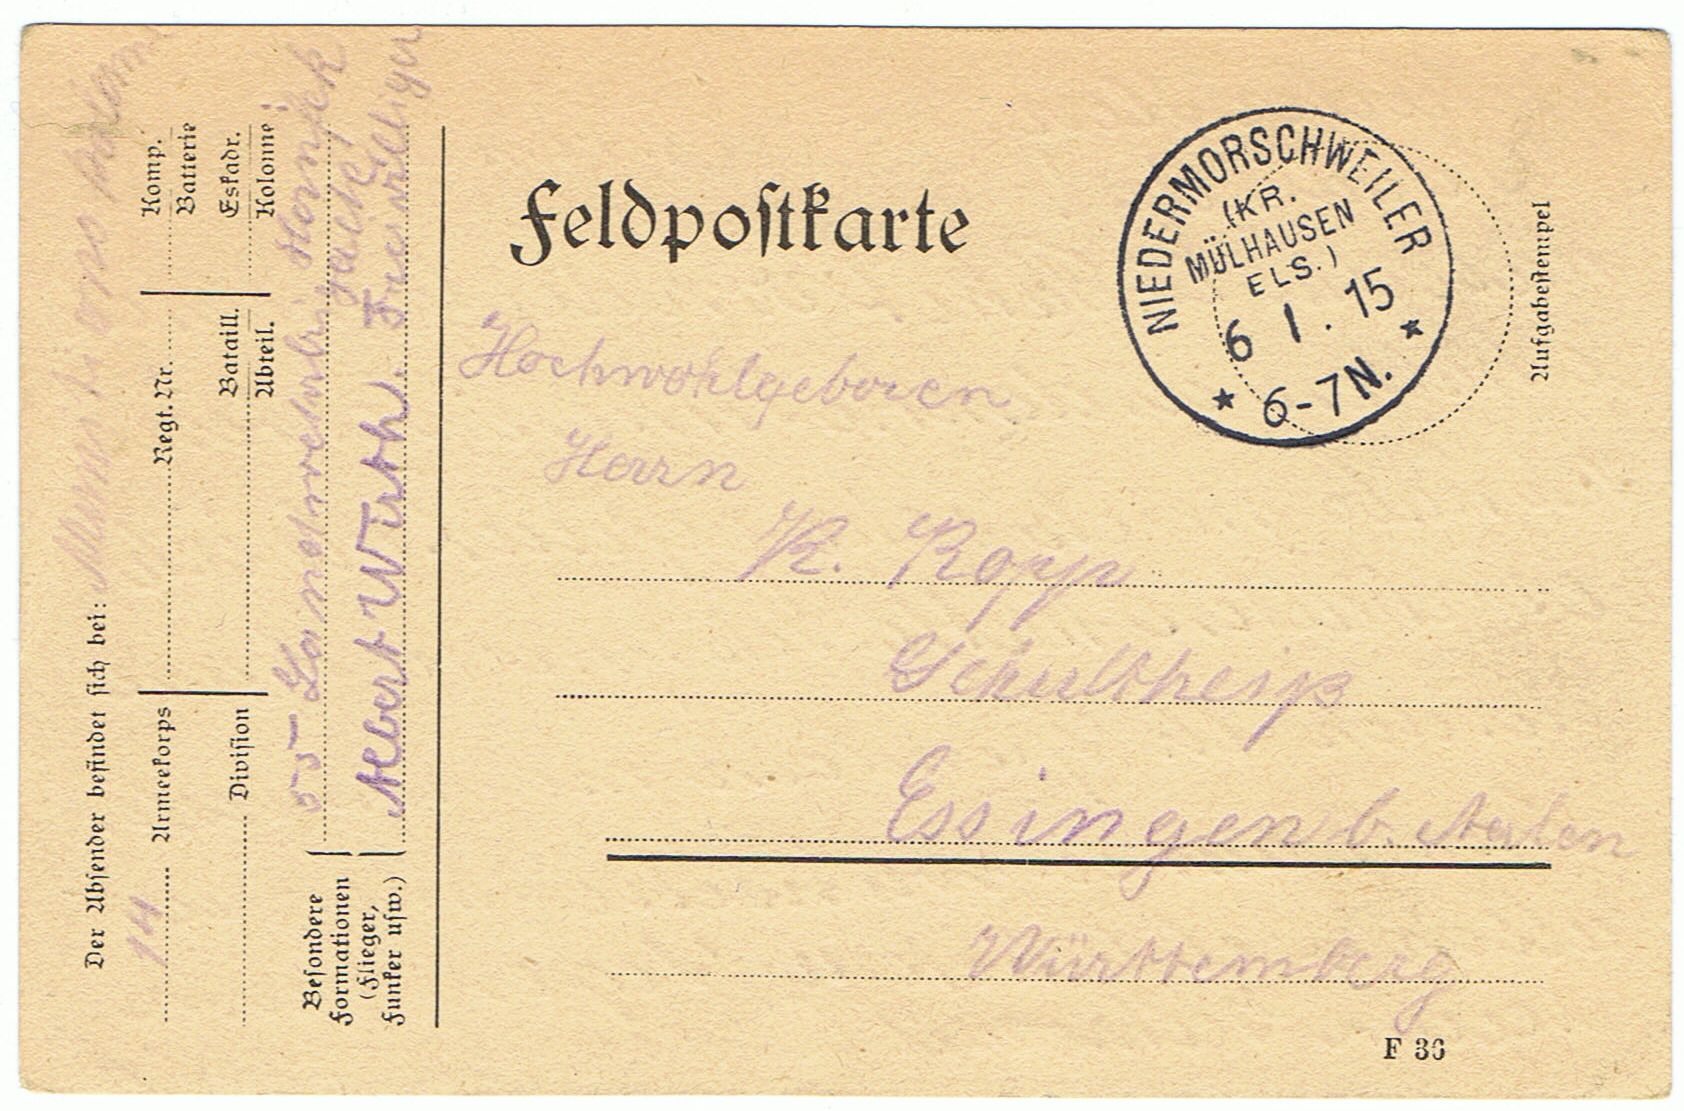 Feldpostkarte
NIEDERMORSCHWEILER
(KR.
MÜLHAUSEN
ELS.)
6 1. 15
6-7N.
Aufgabestempel
Hochwohlgeboren
Herrn
K. Kopp
Schultheiß
Essingen b. Aalen
Württemberg
F 36
Der Absender befindet sich bei: Munitions
14 Armeekorps
Regt. Nr.
Komp.
Batterie
Division
Bataill.
Abteil.
Eskadr.
Kolonne
Besondere
Formationen
(Flieger,
Funker usw.)
55
Albert Wirth. Freiwilliger